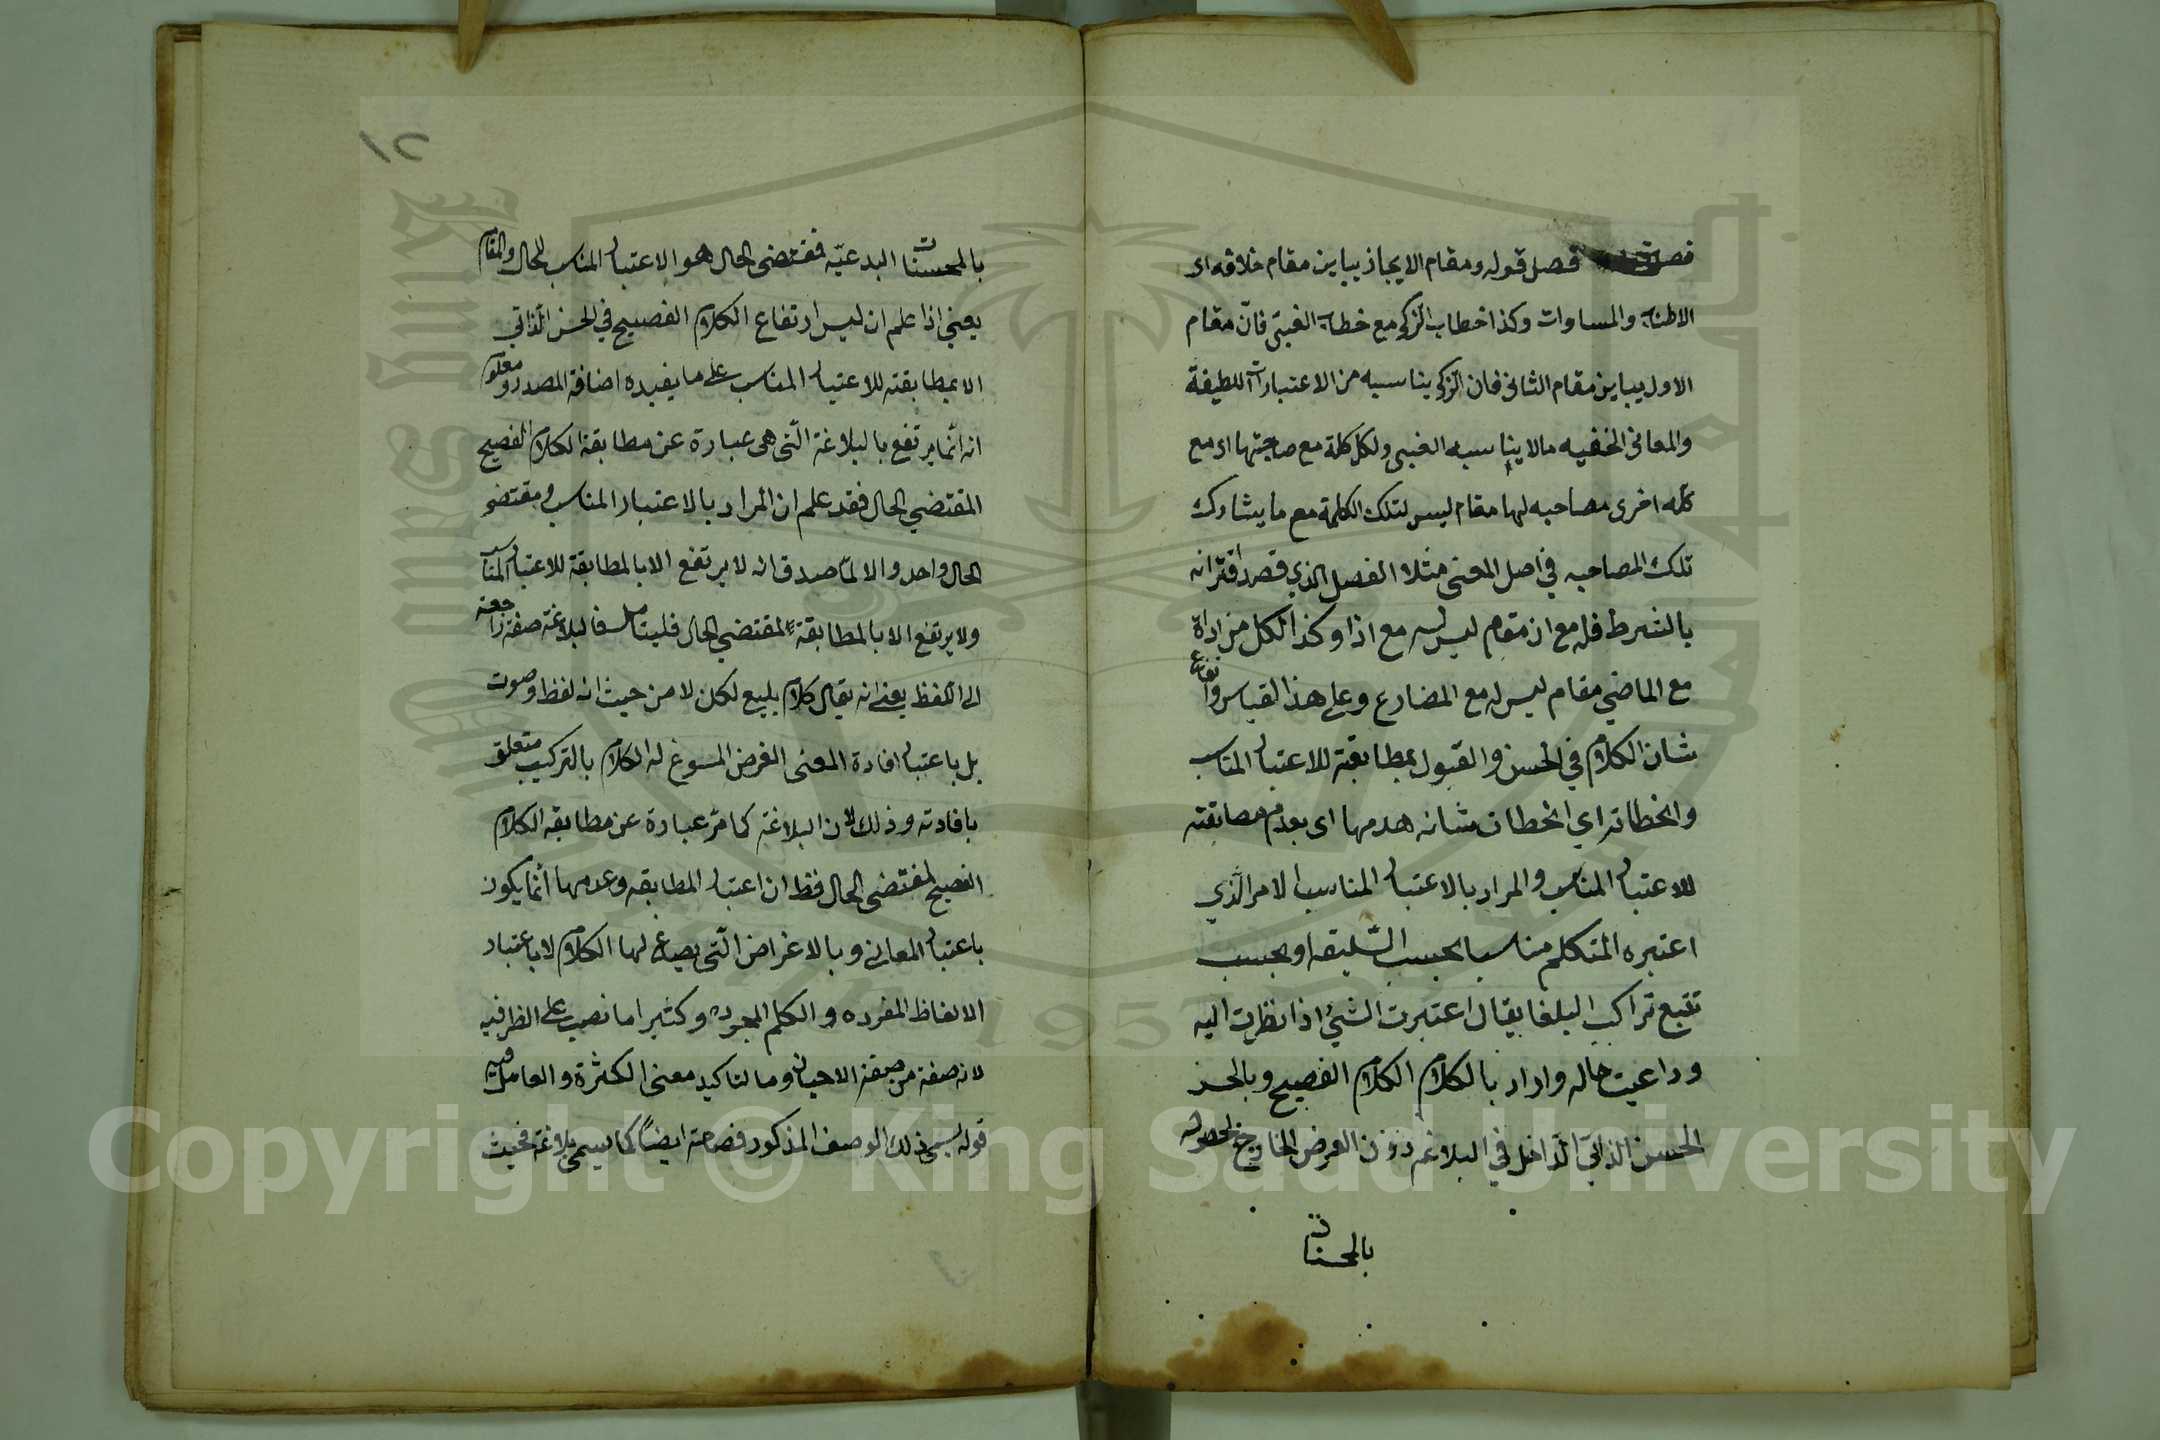 فصل قوله ومقام الايجاز يباين مقام خلافه اى
الاطناب والمساوات وكذا خطاب الزكى مع خطاب الغبى فانّ مقام
الاول يباين مقام الثانى فان الزكى يناسبه من الاعتبارات اللطيفة
والمعانى الخفيه مالا يناسبه الغبى ولكل كلمة مع صاحبتها اى مع
كلمه اخرى مصاحبه لها مقام ليس لتلك الكلمة مع ما يشارك
تلك المصاحبه في اصل المعنى مثلا الفصل الذي قصد اقترانه
بالشرط فله مع ان مقام ليس له مع اذا وكذا لكل من اداة
مع الماضي مقام ليس له مع المضارع وعلى هذا لقياس وارتفاع
شان الكلام في الحسن والقبول بمطابقته للاعتبار المناسب
وانحطاته اي انحطات شانه هدمها اى بعدم مصابقته
للاعتبار المناسب والمراد بالاعتبار المناسب الامر الّذي
اعتبره المتكلم مناسبا بحسب السّليقه او بحسب
تتبع تراكب البلغا يقال اعتبرت الشئ اذا نظرت اليه
وراعيت حاله واراد بالكلام الكلام الفصيح وبالحسن
الحسن الذاتي الدّاخل في البلاغه دون العرض الخارج لحصوله
بالمحسنات
١٢
بالمحسنات البدعيّه فمقتضى الحال هو الاعتبار المناسب للحال والمقام
يعني اذا علم ان ليس ارتفاع الكلام الفصيح في الحسن الّذاتي
الا بمطابقته للاعتبار المناسب على ما يفيده اضافة المصدر ومعلوم
انه انّما يرتفع بالبلاغة الّتى هى عبارة عن مطابقة الكلام الفصيح
المقتضي الحال فقد علم ان المراد بالاعتبار المناسب ومقتضى
الحال واحد والا لمّا صدق انه لا يرتفع الا بالمطابقة للاعتبار المناسب
ولا يرتفع الا بالمطابقة لمقتضي الحال فليتامل فالبلاغة صفة راجعة
الى اللفظ يعنى انه يقال كلام بليغ لكن لا من حيث انه لفظ وصوت
بل باعتبار افادة المعنى الغرض المسوغ له الكلام بالتركيب متعلق
بافادته وذلك لان البلاغة كما مرّ عبارة عن مطابقه الكلام
الفصيح لمقتضى الحال فظ ان اعتبار المطابقه وعدمها انّما يكون
باعتبار المعانى وبالاغراض الّتى يصاغ لها الكلام لا باعتبار
الالفاظ المفرده والكلم المجرده وكثيرا ما نصب على الظرفيه
لانه صفة من صفة الاحيان وما لتاكيد معنى الكثرة والعامل فيه
قوله يسمى ذلك الوصف المذكور فصاحة ايضاً كما يسمى بلاغة فحيث
Copyright © King Saud University
1957